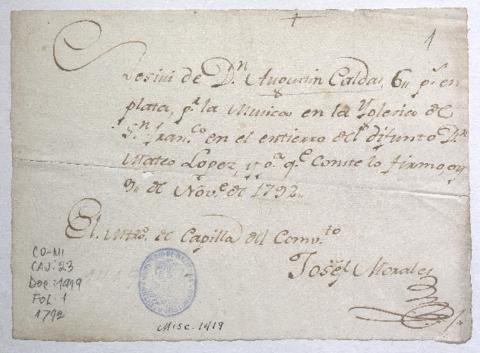 1
Resivi de Dn Augustin Caldas, 6 ps en
plata, pr la Musica en la Yglecia de
Sn Franco en el entierro del difunto Dn
Mateo Lopez, y pa qe Conste lo firmo, en
9 de Nove de 1792
El Mtro de Capilla del Convto
Josef Morales
CO-N1
CAJ: 23
Doc: 1419
FOL: 1
1792
Misc. 1419